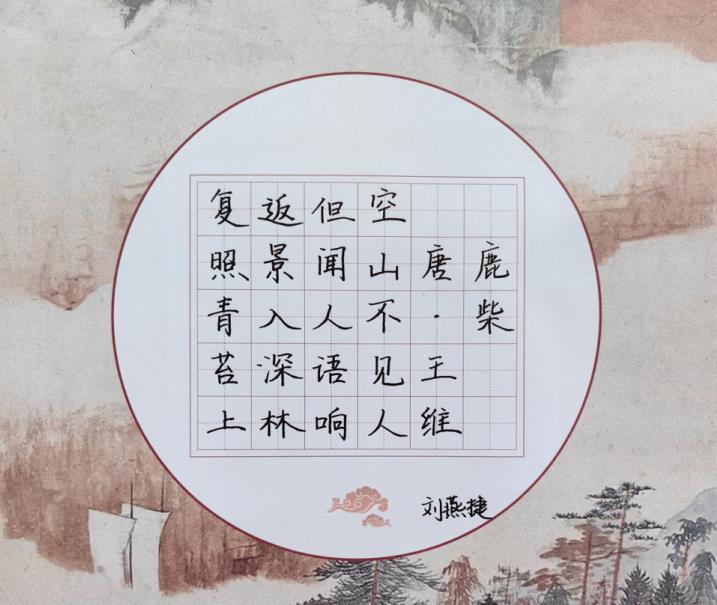 鹿柴
唐·王维
空山不见人
但闻人语响
返景入深林
复照青苔上
刘燕捷